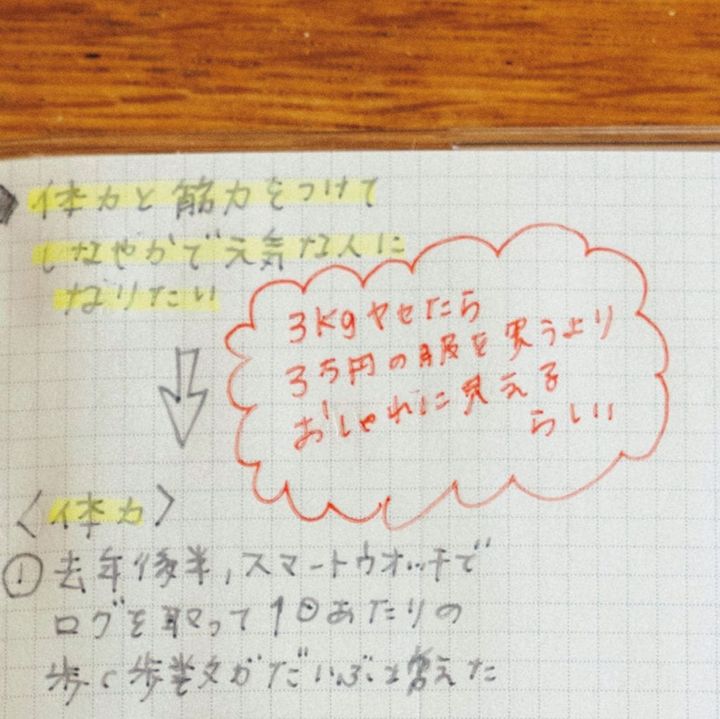 体力と筋力をつけて
しなやかで元気な人に
なりたい
3Kgヤセたら
3万円の服を買うより
おしゃれに見える
らしい
〈体力〉
① 去年後半,スマートウォッチで
ログを取って1日あたりの
歩く歩数がだいぶと増えた